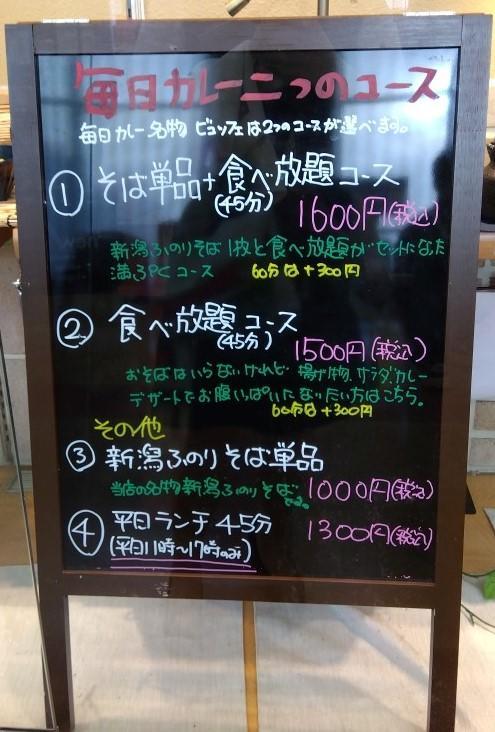 毎日カレー二つのコース
毎日カレー名物 ビュッフェは2つのコースが選べます。
① そば単品+食べ放題コース
(45分)
1600円(税込)
新潟ふのりそば1枚と食べ放題がセットになった
満足コース 60分は+300円
② 食べ放題コース
(45分)
1500円(税込)
おそばはいらないけれど 揚げ物、サラダ、カレー
デザートでお腹いっぱいになりたい方はこちら。
60分は+300円
その他
③ 新潟ふのりそば単品
当店の名物新潟ふのりそば
です。
1000円(税込)
④ 平日ランチ45分
1300円(税込)
(平日11時~17時のみ)